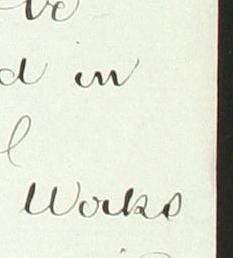 ve
d in
l
Works